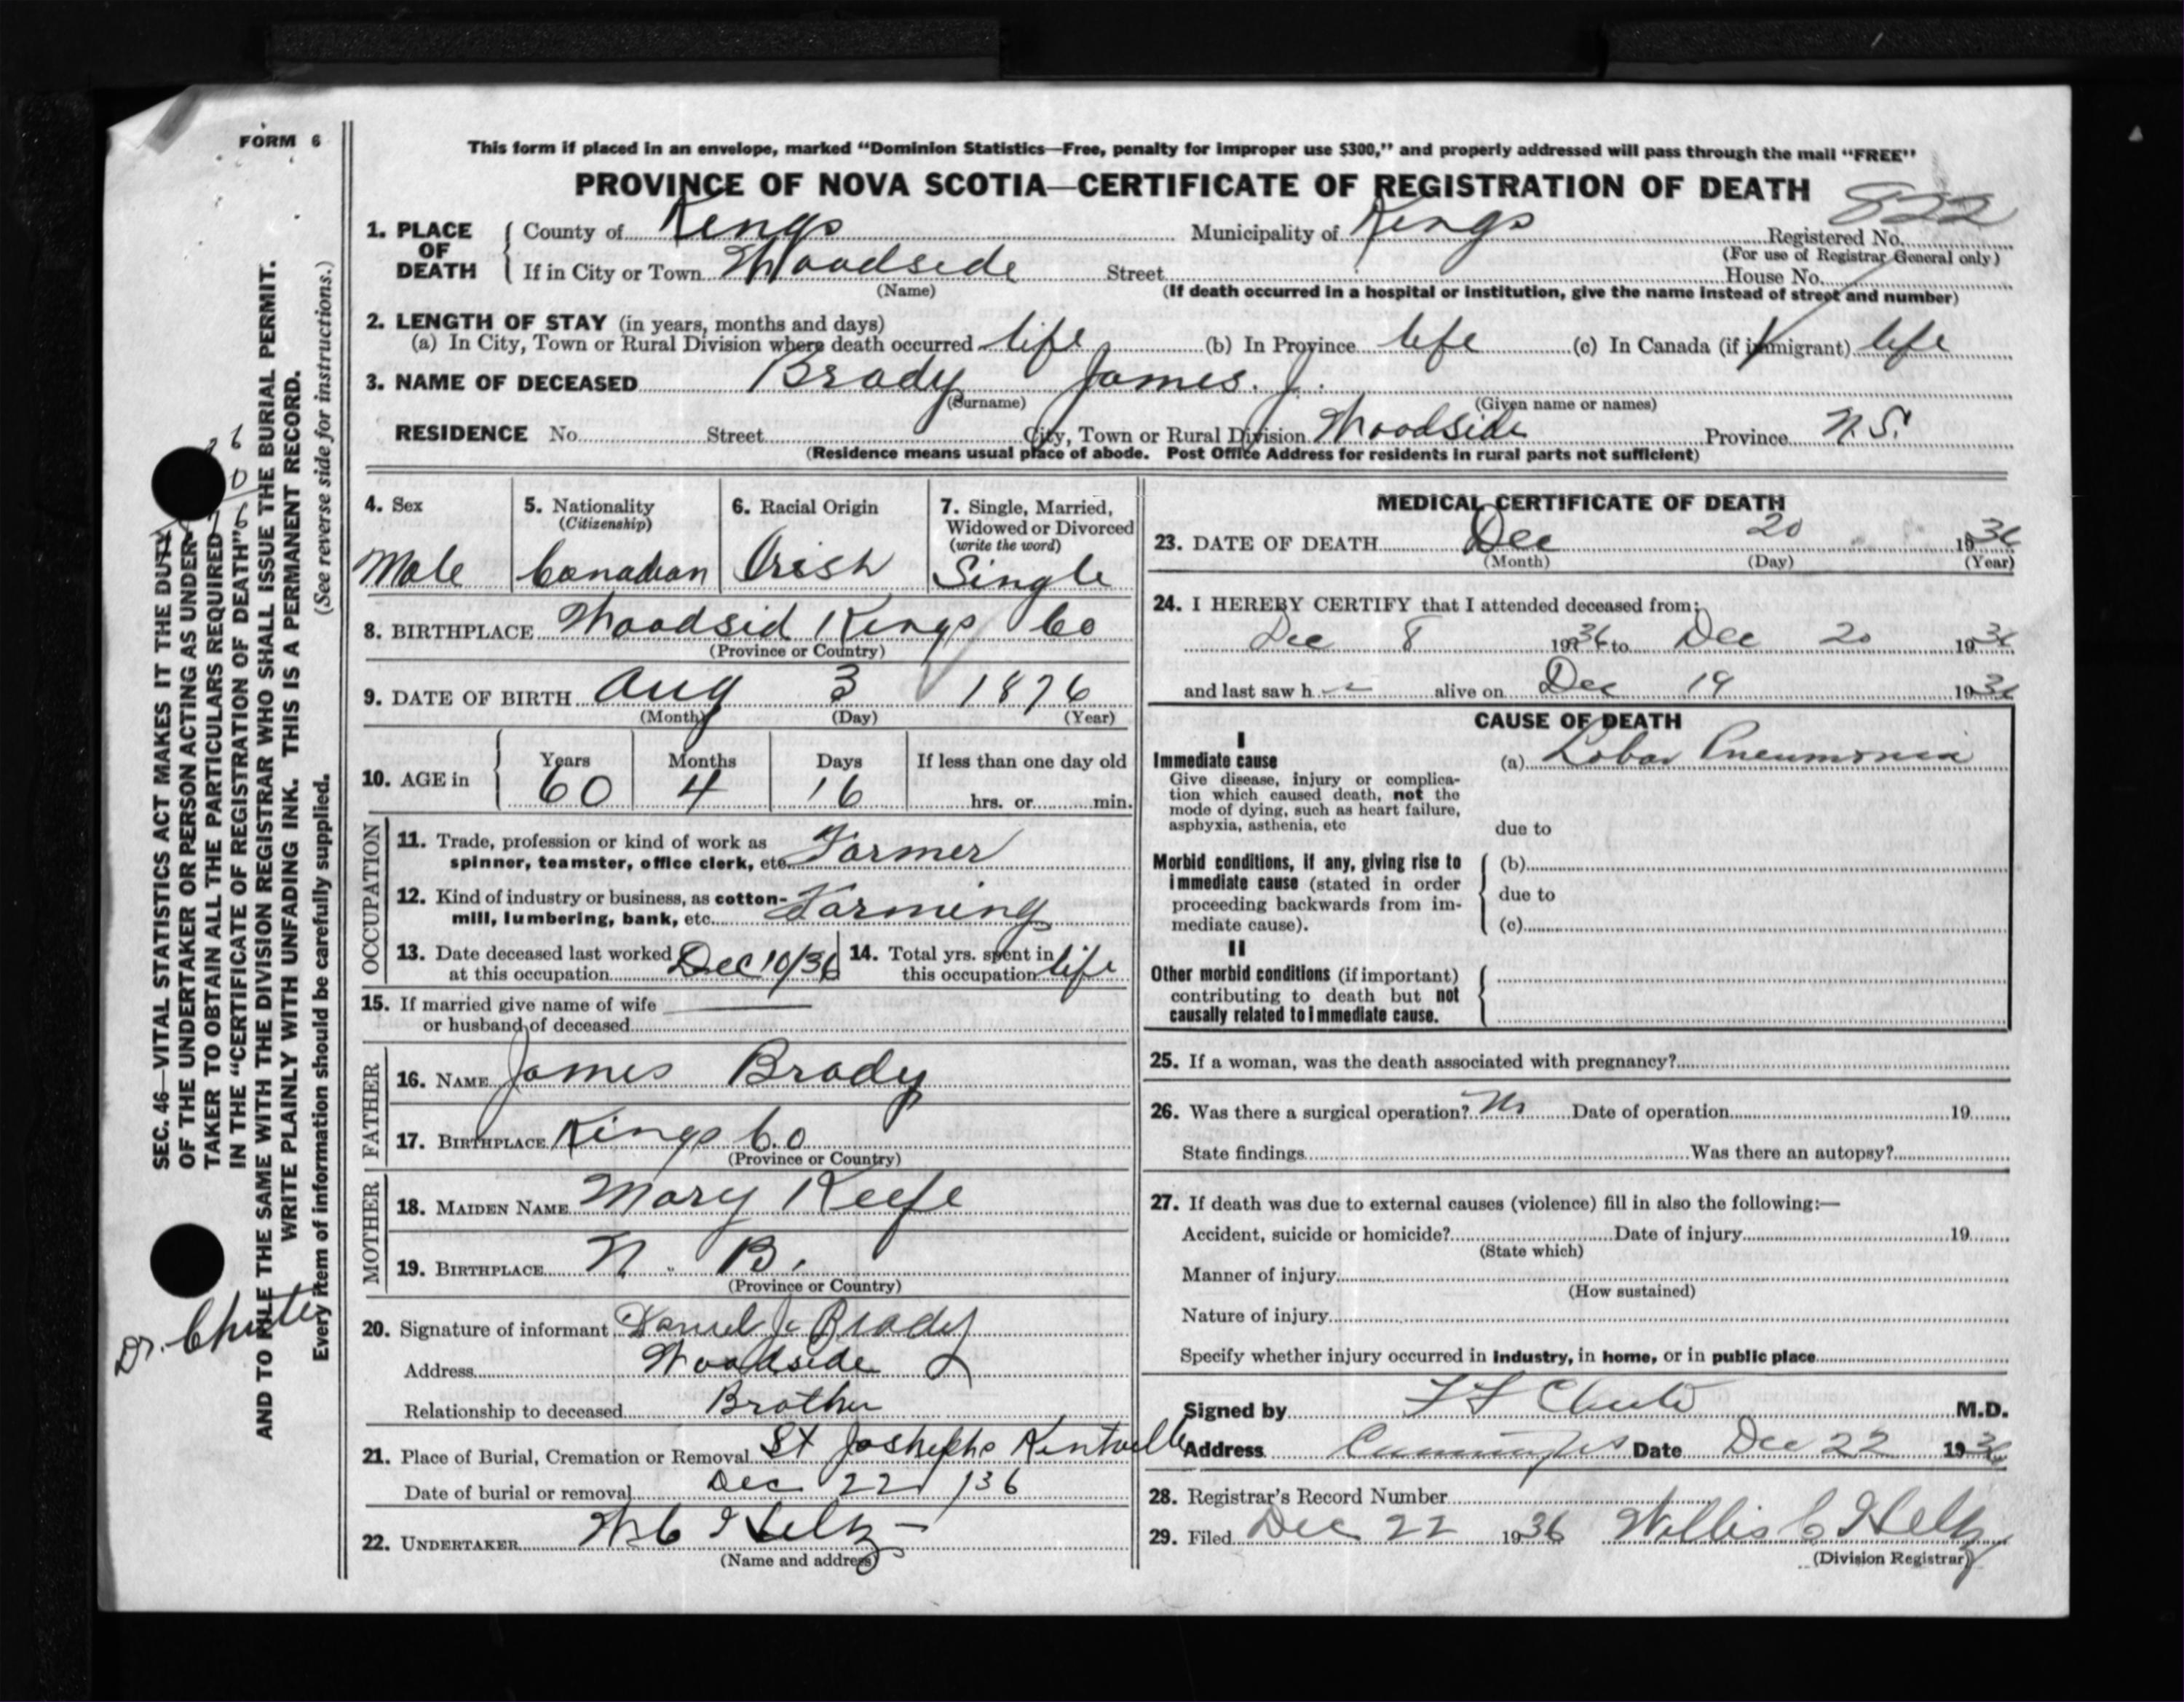 FORM 6
This form if placed in an envelope, marked “Dominion Statistics—Free, penalty for improper use $300,” and properly addressed will pass through the mail “FREE”
PROVINCE OF NOVA SCOTIA—CERTIFICATE OF REGISTRATION OF DEATH
822
1. PLACE OF DEATH County of Kings Municipality of Kings Registered No.
(For use of Registrar General only)
If in City or Town Woodside Street House No.
(Name) (If death occurred in a hospital or institution, give the name instead of street and number)
2. LENGTH OF STAY (in years, months and days)
(a) In City, Town or Rural Division where death occurred life (b) In Province life (c) In Canada (if immigrant) life
3. NAME OF DECEASED Brady James. J.
(Surname) (Given name or names)
RESIDENCE No. Street City, Town or Rural Division Woodside Province N.S.
(Residence means usual place of abode. Post Office Address for residents in rural parts not sufficient)
4. Sex
Male
5. Nationality
(Citizenship)
Canadian
6. Racial Origin
Irish
7. Single, Married,
Widowed or Divorced
(write the word)
Single
8. BIRTHPLACE Woodsid Kings Co
(Province or Country)
9. DATE OF BIRTH Aug 3 1876
(Month) (Day) (Year)
10. AGE in
Years Months Days If less than one day old
60 4 16 hrs. or min.
OCCUPATION
11. Trade, profession or kind of work as
spinner, teamster, office clerk, etc. Farmer
12. Kind of industry or business, as cotton-
mill, lumbering, bank, etc. Farming
13. Date deceased last worked
at this occupation Dec 10/36
14. Total yrs. spent in
this occupation life
15. If married give name of wife
or husband of deceased
FATHER
16. NAME James Brady
17. BIRTHPLACE Kings Co
(Province or Country)
MOTHER
18. MAIDEN NAME Mary Keefe
19. BIRTHPLACE N. B.
(Province or Country)
20. Signature of informant Daniel J. Brady
Address Woodside
Relationship to deceased Brother
21. Place of Burial, Cremation or Removal St Joshephs Kentville
Date of burial or removal Dec 22 /36
22. UNDERTAKER
(Name and address)
MEDICAL CERTIFICATE OF DEATH
23. DATE OF DEATH Dec 20 1936
(Month) (Day) (Year)
24. I HEREBY CERTIFY that I attended deceased from:
Dec 8 1936 to Dec 20 1936
and last saw h alive on Dec 19 1936
CAUSE OF DEATH
I
Immediate cause
Give disease, injury or complica-
tion which caused death, not the
mode of dying, such as heart failure,
asphyxia, asthenia, etc
(a) Lobar Pneumonia
due to
Morbid conditions, if any, giving rise to
immediate cause (stated in order
proceeding backwards from im-
mediate cause).
(b)
due to
(c)
II
Other morbid conditions (if important)
contributing to death but not
causally related to immediate cause.
25. If a woman, was the death associated with pregnancy?
26. Was there a surgical operation? No Date of operation 19
State findings Was there an autopsy?
27. If death was due to external causes (violence) fill in also the following:—
Accident, suicide or homicide? Date of injury 19
(State which)
Manner of injury
(How sustained)
Nature of injury
Specify whether injury occurred in industry, in home, or in public place
Signed by F F Chute M.D.
Address Date Dec 22 1936
28. Registrar's Record Number
29. Filed Dec 22 1936 Willis C
(Division Registrar)
SEC. 46—VITAL STATISTICS ACT MAKES IT THE DUTY
OF THE UNDERTAKER OR PERSON ACTING AS UNDER-
TAKER TO OBTAIN ALL THE PARTICULARS REQUIRED
IN THE “CERTIFICATE OF REGISTRATION OF DEATH”
AND TO FILE THE SAME WITH THE DIVISION REGISTRAR WHO SHALL ISSUE THE BURIAL PERMIT.
WRITE PLAINLY WITH UNFADING INK. THIS IS A PERMANENT RECORD.
Every item of information should be carefully supplied. (See reverse side for instructions.)
Dr. Chute